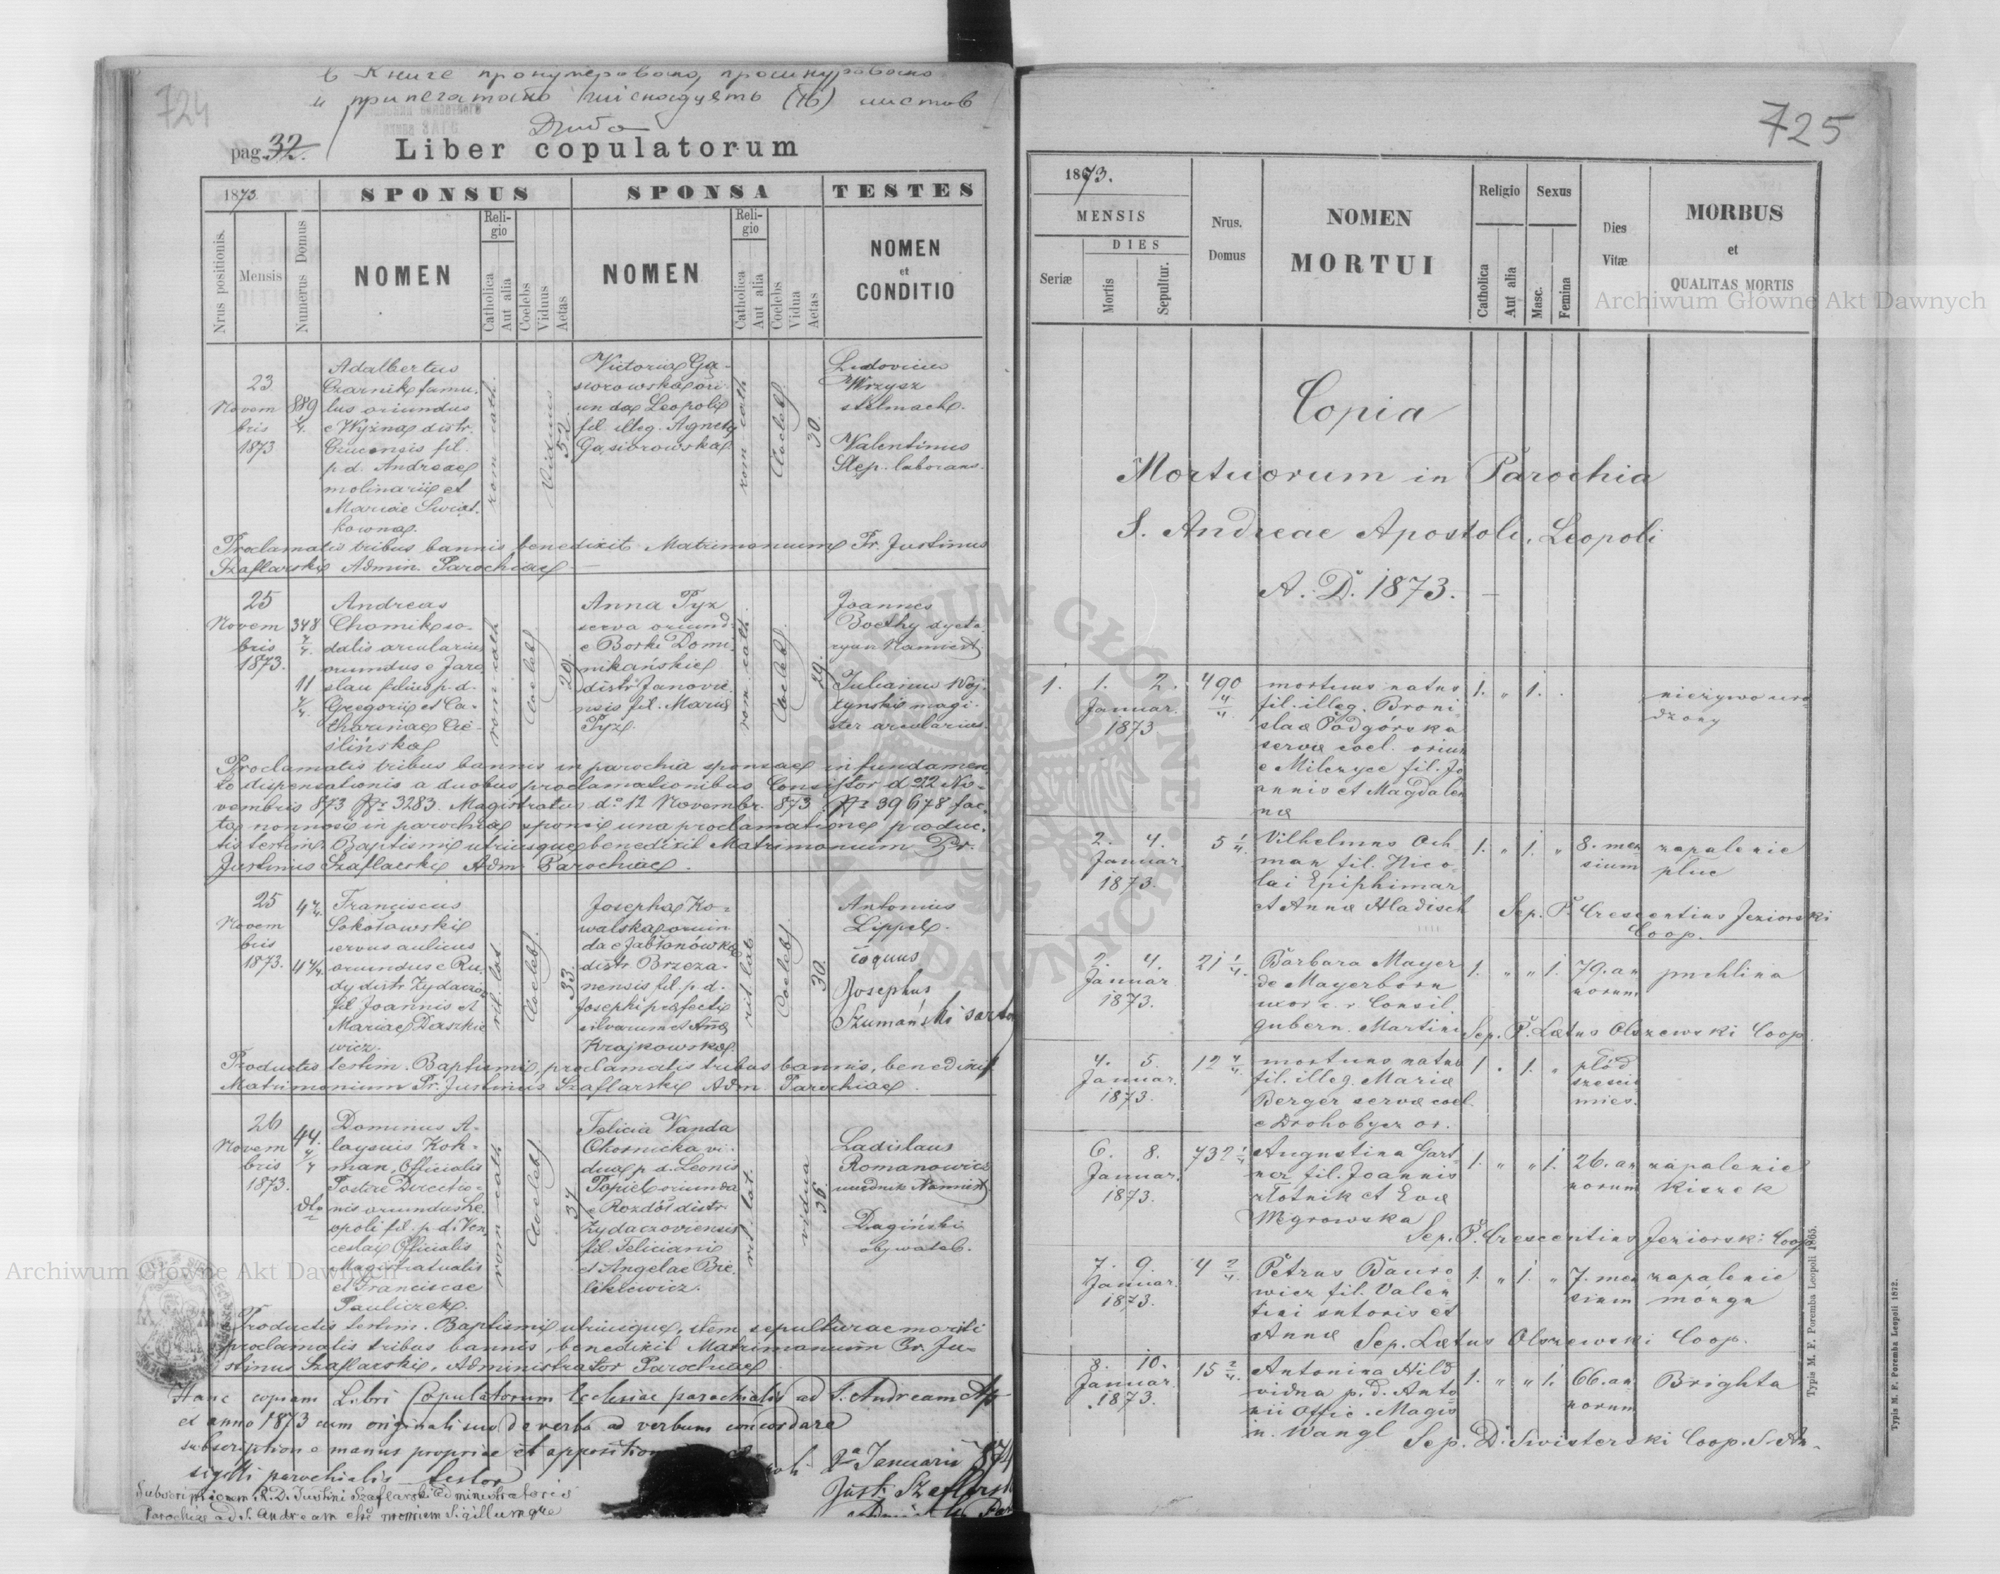 724
в Книге пронумеровано, прошнуровано
и припечатано листов
pag. 32.
Liber copulatorum
1873.
SPONSUS
SPONSA
TESTES
Nrus positionis.
Mensis
Numerus Domus
NOMEN
Religio
Catholica
Aut alia
Coelebs
Viduus
Aetas
NOMEN
Religio
Catholica
Aut alia
Coelebs
Vidua
Aetas
NOMEN
et
CONDITIO
23
Novem
bris
1873
889
4/4
Adalbertus
Czarnik famu-
lus oriundus
e Wyżna distr.
fil.
p. d. Andreae
molinarii et
Mariae Świąt-
kowna.
rom. cath.
Viduus
52.
Victoria Gą-
siorowska ori-
unda Leopoli
fil. illeg. Agnetis
Gąsiorowska
rom. cath.
Coelebs
30.
Ludovicus
Wrzysz
stelmach.
Valentinus
Step. laborans.
Proclamatis tribus bannis benedixit Matrimonium Fr. Justinus
Szaflarski Admin. Parochiae
25
Novem
bris
1873.
348
4/4
11
4/4
Andreas
Chomik so-
dalis arcularius
oriundus e Jaro-
slau filius p. d.
Gregorii et Ca-
tharinae Cie-
ślińska
rom. cath
Coelebs
29.
Anna Pyz
serva oriund.
e Borki Domi-
nikańskie
distr. Janovi-
ensis fil. Mariae
Pyz.
rom. cath.
Coelebs
29.
Joannes
Boethy dyeta-
ryusz Namiest.
Julianus Woj-
tyński magi-
ster arcularius.
Proclamatis tribus bannis in parochia sponsae in fundamen-
to dispensationis a duobus proclamationibus Consistor. do 22 No-
vembris 873 Nr 3283. Magistratus do 12 Novembr. 873 Nr 39678 fac-
ta nonnosi in parochia sponsi una proclamatione, produc-
tis testim. Baptismi utriusque benedixit Matrimonium Fr.
Justinus Szaflarski Adm. Parochiae.
25
Novem
bris
1873.
4 2/4
4 4/4
Franciscus
Sokołowski
servus aulicus
oriundus e Ru-
dy distr. Żydaczow
fil. Joannis et
Mariae Daszkie-
wicz.
rit. lat
Coelebs
33.
Josepha Ko-
walska oriun-
da e Jabłonówka
distr. Brzeża-
nensis fil. p. d.
Josephi praefecti
silvarum et Annae
Krajkowska.
rit. lat.
Coelebs
30.
Antonius
Lippel.
coquus
Josephus
Szumański sartor
Productis testim. Baptismi, proclamatis tribus bannis, benedixit
Matrimonium Fr. Justinus Szaflarski Adm. Parochiae.
26
Novem
bris
1873.
44.
4/4
Dominus A-
laysuis Koh-
man, Officialis
Postae Directio-
nis oriundus Le-
opoli fil. p. d. Ven-
ceslai Officialis
Magistratualis
et Franciscae
Pauliczek.
rom. cath
Coelebs
34
Felicia Vanda
Chornicka vi-
dua p. d. Leonis
Popiel oriunda
e Rozdół distr.
Żydaczoviensis
fil. Feliciani
et Angelae Bie-
likiewicz.
rit. lat.
vidua
36.
Ladislaus
Romanowicz
urzednik Namiest.
Dagiński
obywatel.
Productis testim. Baptismi utriusque, item sepulturae mariti
proclamatis tribus bannis, benedixit Matrimonium Fr. Ju-
stinus Szaflarski, Administrator Parochiae.
Hanc copiam Libri Copulatorum Ecclesiae parochialis ad S. Andream Ap
et anno 1873 cum originali suo de verbo ad verbum concordare
subscriptione manus propriae et appositione
sigilli parochialis testor
Januarii 1874
Just. Szaflarski
Subscriptionem R. D. Justini Szaflarski administratoris
Parochiae ad S. Andream esse Sigillumque
725
1873.
MENSIS
DIES
Seriæ
Mortis
Sepultur.
Nrus.
Domus
NOMEN
MORTUI
Religio
Catholica
Aut alia
Sexus
Masc.
Femina
Dies
Vitæ
MORBUS
et
QUALITAS MORTIS
Copia
Mortuorum in Parochia
S. Andreae Apostoli, Leopoli
A. D. 1873.
1. 1. 2.
Januar.
1873
490
4/4
mortuus natus
fil. illeg. Broni-
slaa Podgórska
serva coel. oriun
e Milczyce fil. Jo-
annis et Magdale-
na
1. " 1. .
nieżywo uro-
dzony
2. 4.
Januar.
1873.
5 1/4
Vilhelmus Och-
man fil. Nico-
lai Epiphimar
et Anna Hladisch
1. " 1. "
8. men
sium
zapalenie
pluc
Sep. P. Crescentius Jeziorski
Coop.
2. 4.
Januar.
1873.
21 1/4
Barbara Mayer
de Mayerborn
uxor c. r. Consil.
gubern. Martini
1. " " 1.
79. an
norum
puchlina
Sep. P. Lætus Olszewski Coop.
4. 5.
Januar.
1873.
12 4/4
mortuus natus
fil. illeg. Maria
Berger serva coel.
e Drohobycz or.
1 . 1. "
płód
sześcio
mies.
6. 8.
Januar.
1873.
732 1/4
Augustina Gart-
ner fil. Joannis
złotnik et Eva
Węgrowska
1. " " 1.
26. an
norum
zapalenie
kiszek
Sep. P. Crescentius Jeziorski Coop.
7. 9.
Januar.
1873.
4 2/4
Petrus Bauro-
wicz fil. Valen-
tini sutoris et
Anna
1. " 1. "
7. men
sium
zapalenie
mózgu
Sep. Lætus Olszewski Coop.
8. 10.
Januar.
1873.
15 2/4
Antonina Hild
vidua p. d. Anto-
nii Offic. Magis-
n. Wangl
1. " " 1.
66. an
norum
Brighta
Sep. D. Swisterski Coop. S. An-
Typis M. F. Poremba Leopoli 1865.
Typis M. F. Poremba Leopoli 1872.
Archiwum Główne Akt Dawnych
Archiwum Główne Akt Dawnych
ARCHIWUM GŁÓWNE AKT DAWNYCH